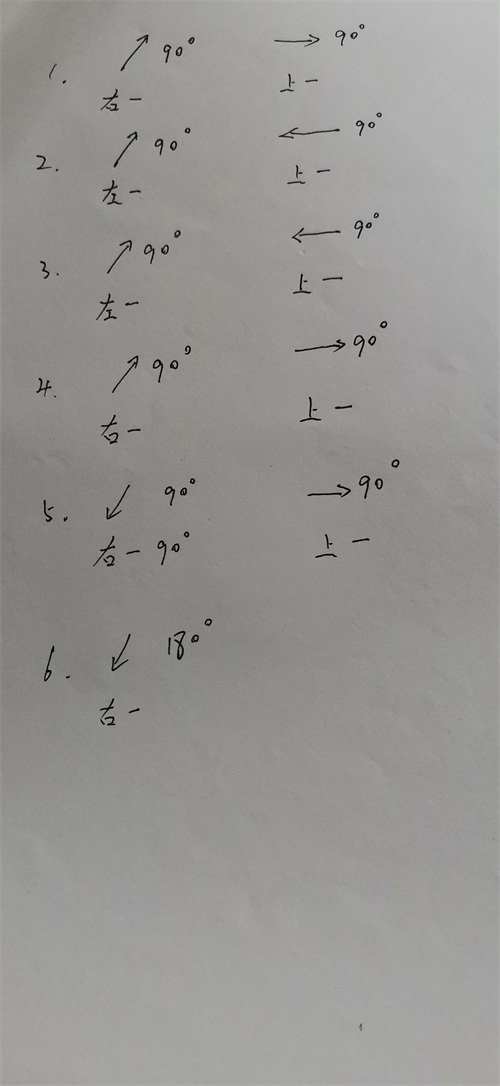 1. ↗ 90° → 90°
右一 上一
2. ↗ 90° ← 90°
左一 上一
3. ↗ 90° ← 90°
左一 上一
4. ↗ 90° → 90°
右一 上一
5. ↙ 90° → 90°
右一 90° 上一
6. ↙ 180°
右一